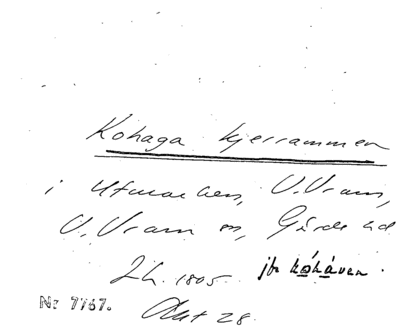 Kohaga kjerrammen
i Utmarken, V. Vram,
V. Vram sn, Gärds hd
Lh. 1805. jfr kóháven.
Akt 28
Nr 7767.